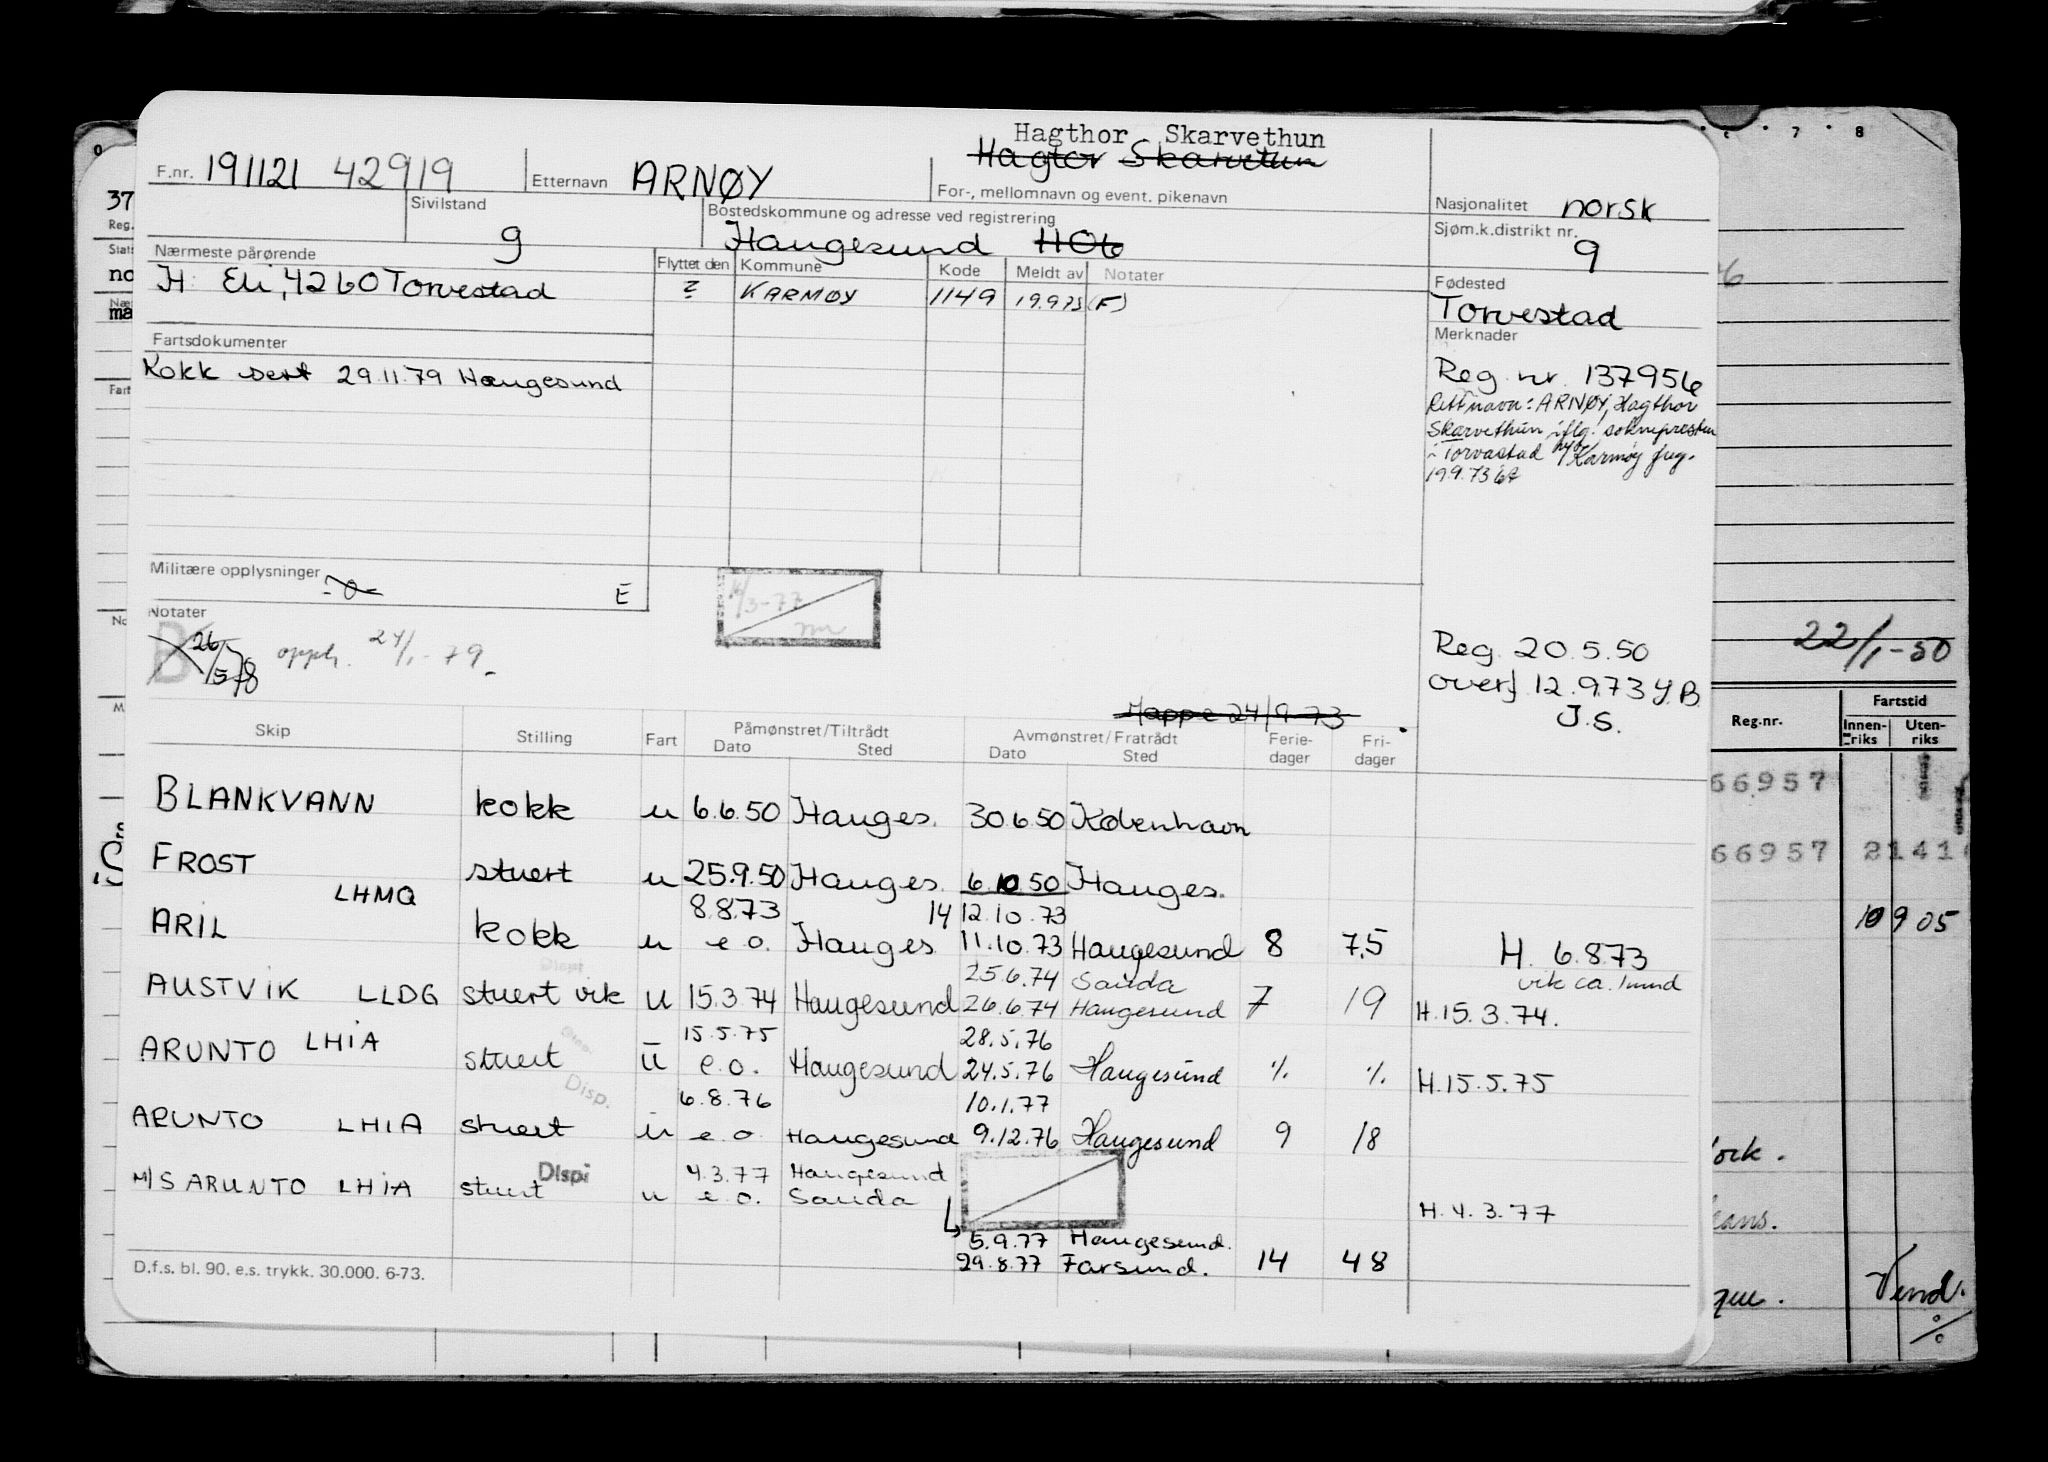 Hagthor Skarvethun
F.nr. 191121 42919 Etternavn ARNØY Hagtor Skarvetun
For-, mellomnavn og event. pikenavn
Nasjonalitet norsk
Sivilstand g
Bostedskommune og adresse ved registrering
Haugesund 1106
Sjøm.k.distrikt nr. 9
Nærmeste pårørende
H: Eli, 4260 Torvestad
Flyttet den Kommune Kode Meldt av Notater
? KARMØY 1149 19.9.73 (F)
Fødested
Torvestad
Fartsdokumenter
Kokk sert 29.11.79 Haugesund
Merknader
Reg. nr. 137956
Rett navn: ARNØY, Hagthor
Skarvethun iflg. soknepresten
i Torvastad Karmøy freg.
19.9.73
Militære opplysninger -0- E
Notater
B 26/5 78 opph. 24/1-79.
/3-77
Reg. 20.5.50
overf. 12.9.73 Y.B.
J.S.
Mappe 24/9-73
Skip Stilling Fart Påmønstret/Tiltrådt Dato Sted Avmønstret/Fratrådt Dato Sted Ferie-dager Fri-dager
BLANKVANN kokk u 6.6.50 Hauges. 30.6.50 København
FROST stuert u 25.9.50 Hauges. 6.10.50 Hauges.
LHMQ 8.8.73 14 12.10.73
ARIL kokk u e.o. Hauges. 11.10.73 Haugesund 8 7,5 H. 6.8.73
25.6.74 Sauda vik ca. 1 mnd
AUSTVIK LLDG stuert vik u 15.3.74 Haugesund 26.6.74 Haugesund 7 19 H.15.3.74.
15.5.75 28.5.76
ARUNTO LHIA stuert u e.o. Haugesund 24.5.76 Haugesund % % H.15.5.75
Disp.
6.8.76 10.1.77
ARUNTO LHIA stuert u e.o. Haugesund 9.12.76 Haugesund 9 18
Dispi 4.3.77 Haugesund
M/S ARUNTO LHIA stuert u e.o. Sauda H. 4.3.77
5.9.77 Haugesund.
29.8.77 Farsund. 14 48
D.f.s. bl. 90. e.s. trykk. 30.000. 6-73.
37
Reg.
no
ma
7 8
22/1-50
Reg.nr. Fartstid
Innen-riks Uten-riks
66957
66957 2141
10905
Vend.